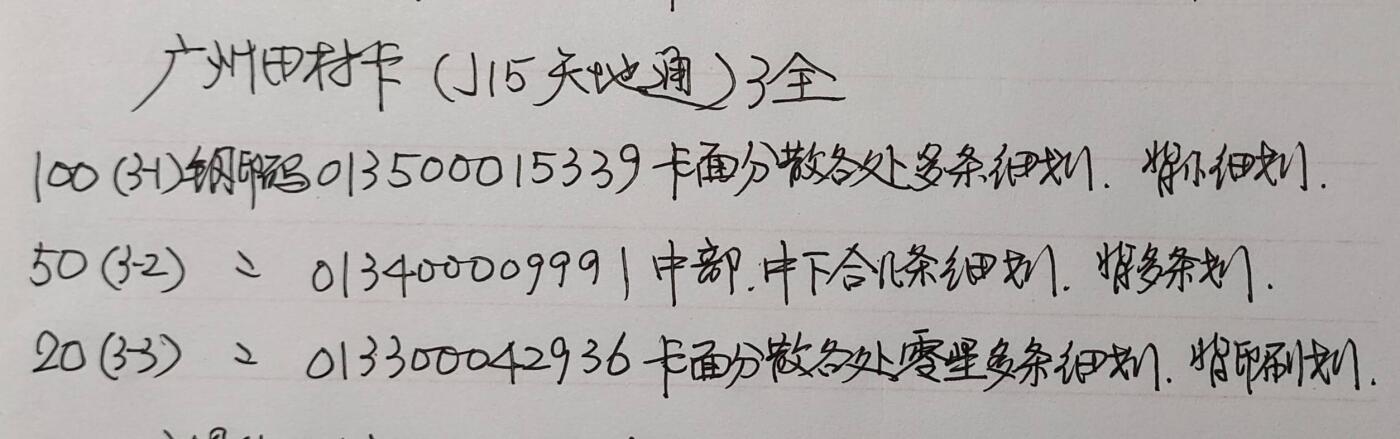 广州田村卡（J15天地通）3全
100(3-1)钢印码013500015339卡面分散各处多条细划.背亦细划.
50(3-2) 〃 013400009991中部.中下合几条细划.背多条划.
20(3-3) 〃 013300042936卡面分散各处零星多条细划.背印刷划.